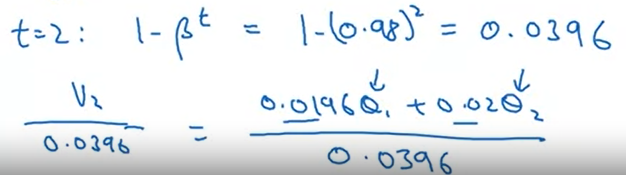 t=2: 1-β^t = 1-(0.98)^2 = 0.0396
V₂/0.0396 = (0.0196θ₁ + 0.02θ₂)/0.0396